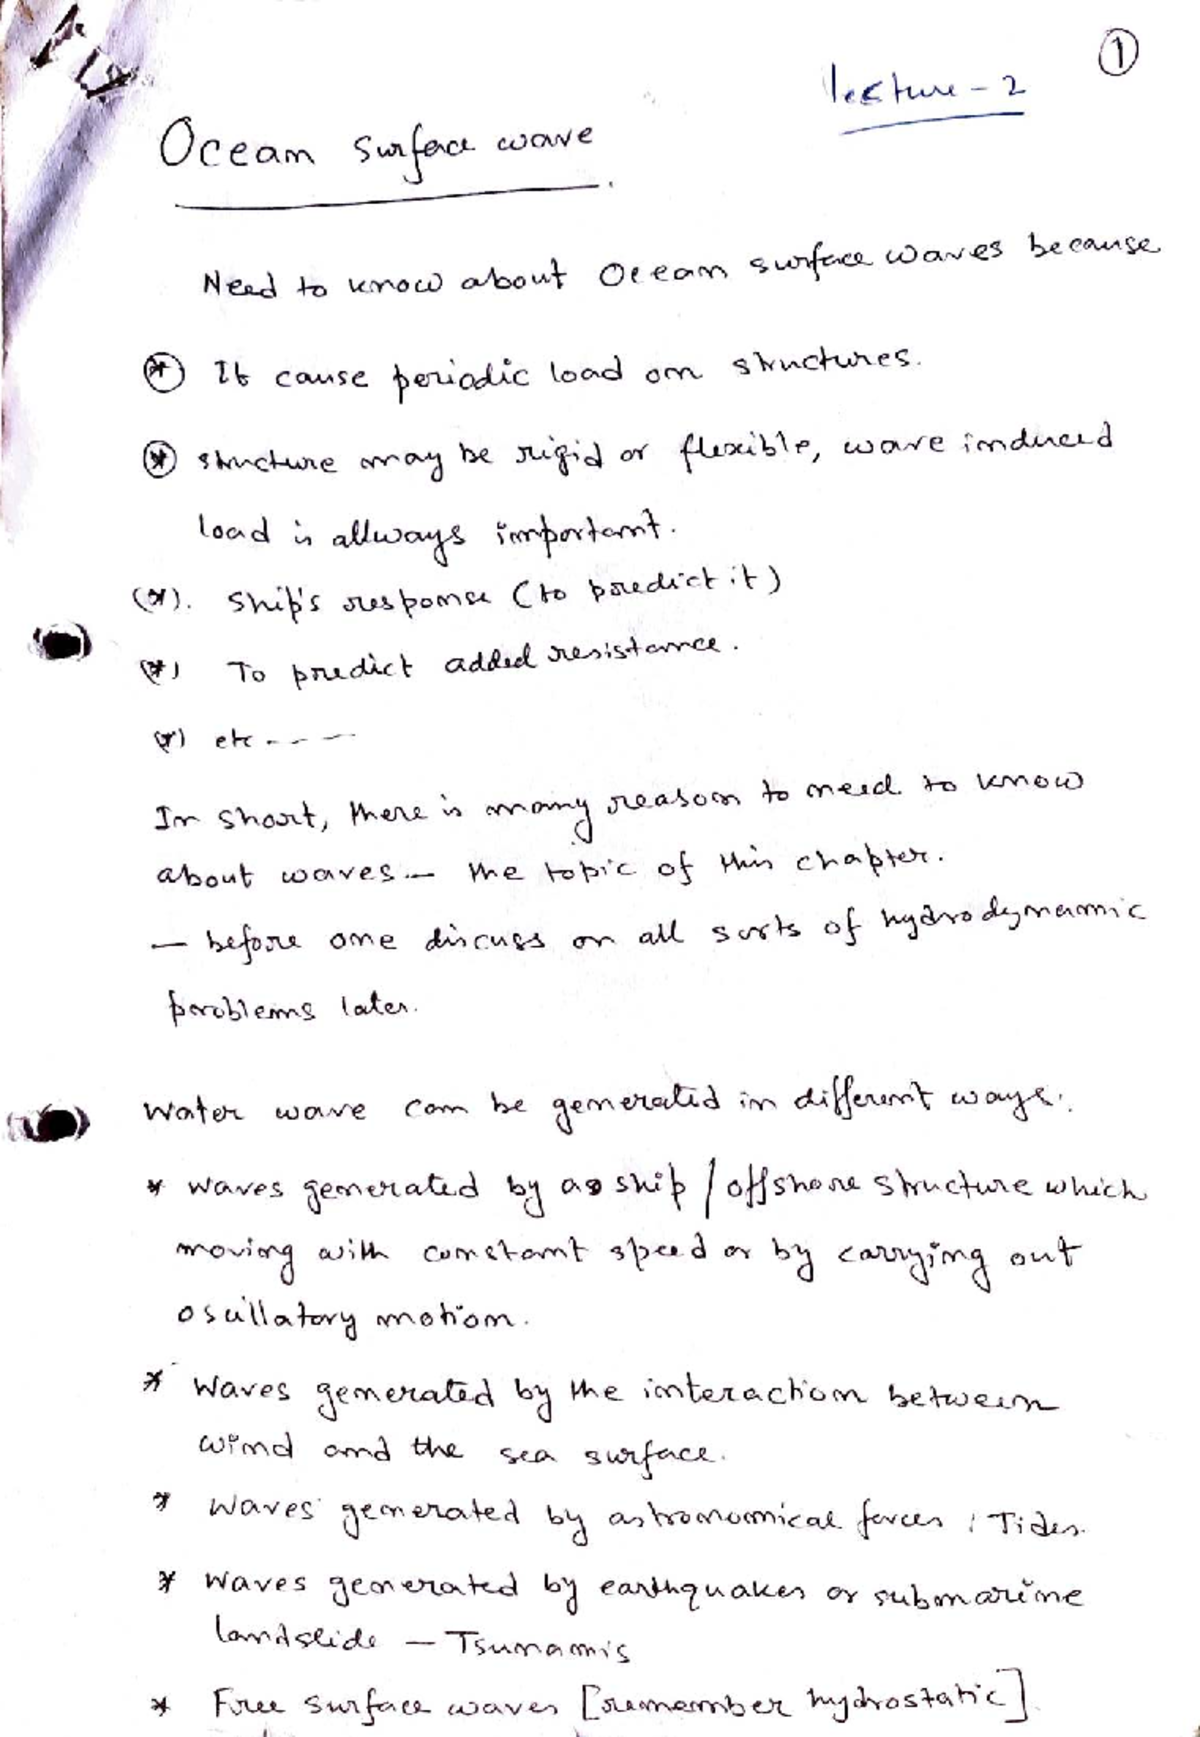 1
lecture - 2
Ocean surface wave
Need to know about Ocean surface waves because
* It cause periodic load on structures.
* structure may be rigid or flexible, wave induced
load is allways important.
(*). Ship's response (to predict it)
(*) To predict added resistance.
(*) etc ----
In short, there is many reason to need to know
about waves — the topic of this chapter.
— before one discuss on all sorts of hydrodynamic
problems later.
Water wave can be generated in different ways.
* Waves generated by a ship / offshore structure which
moving with constant speed or by carrying out
oscillatory motion.
* Waves generated by the interaction between
wind and the sea surface.
* Waves generated by astronomical forces : Tides.
* Waves generated by earthquakes or submarine
landslide — Tsunamis
* Free surface waves [remember hydrostatic]